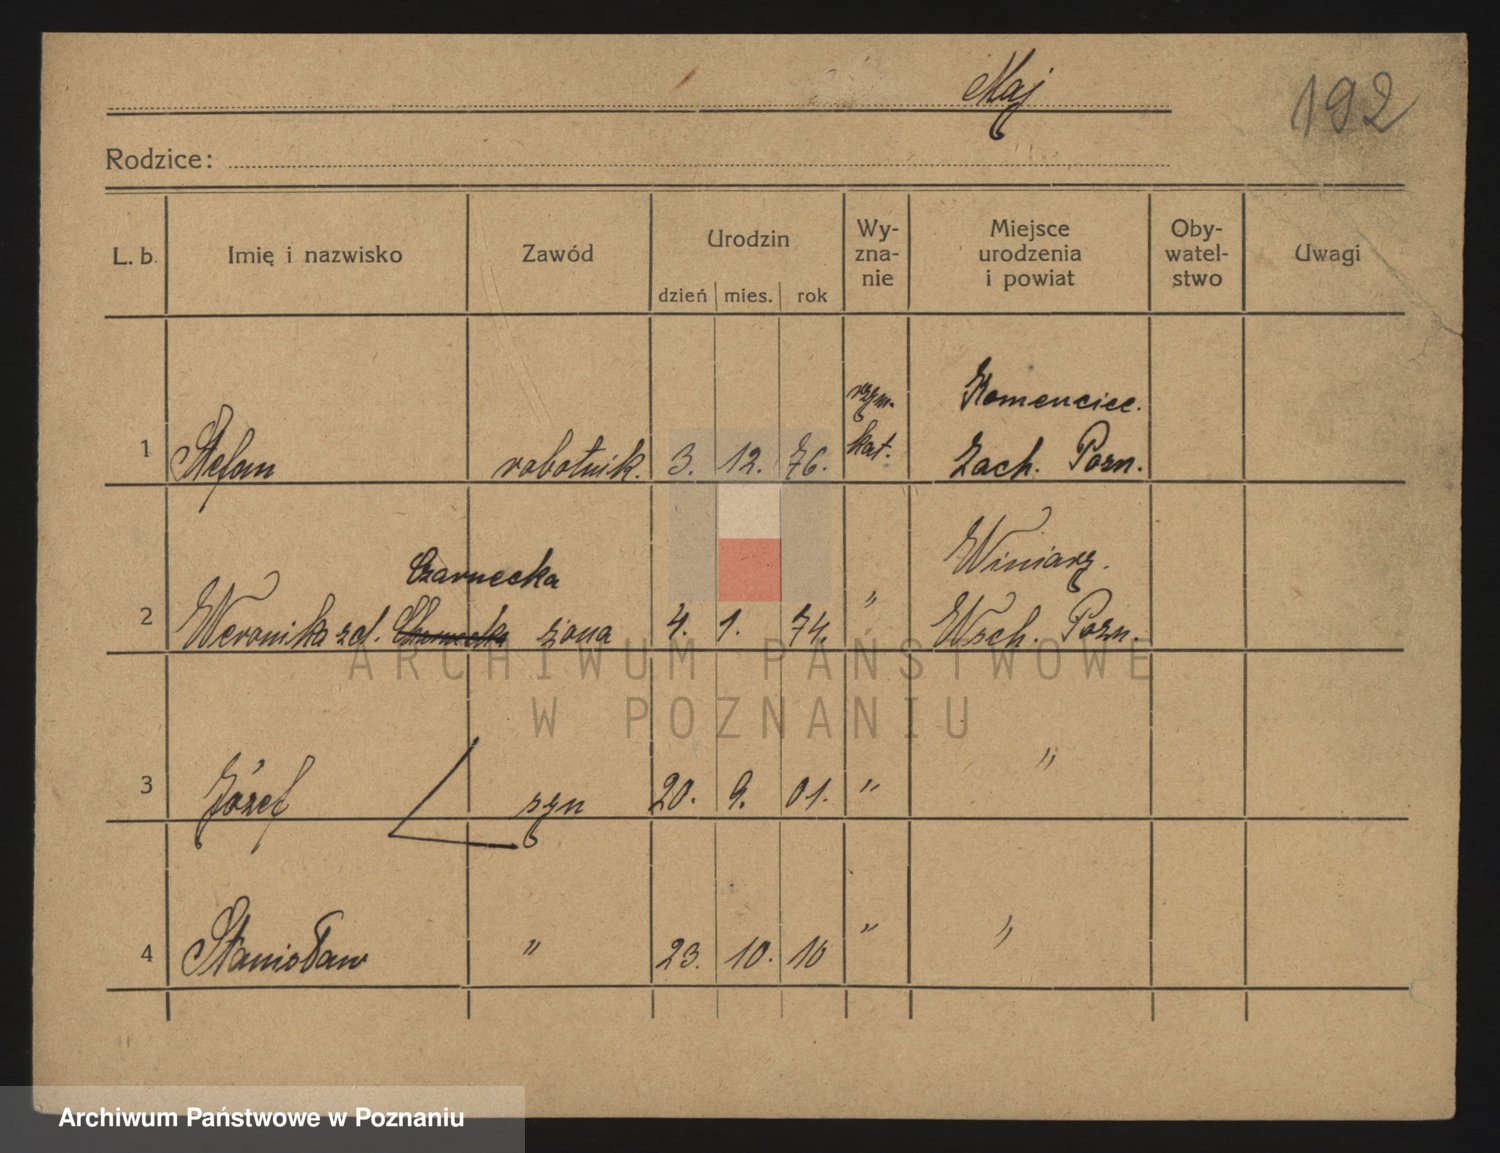 Maj
192
Rodzice:
L. b. Imię i nazwisko Zawód Urodzin dzień mies. rok Wy-zna-nie Miejsce urodzenia i powiat Oby-watel-stwo Uwagi
rzym.
1 Stefan robotnik. 3. 12. 76. kat. Zach. Pozn.
Czarnecka Winiarz.
2 Weronika zd. żona 4. 1. 74. " Wsch. Pozn.
3 Józef syn 20. 9. 01. " "
4 Stanisław " 23. 10. 10 " "
ARCHIWUM PAŃSTWOWE
W POZNANIU
Archiwum Państwowe w Poznaniu